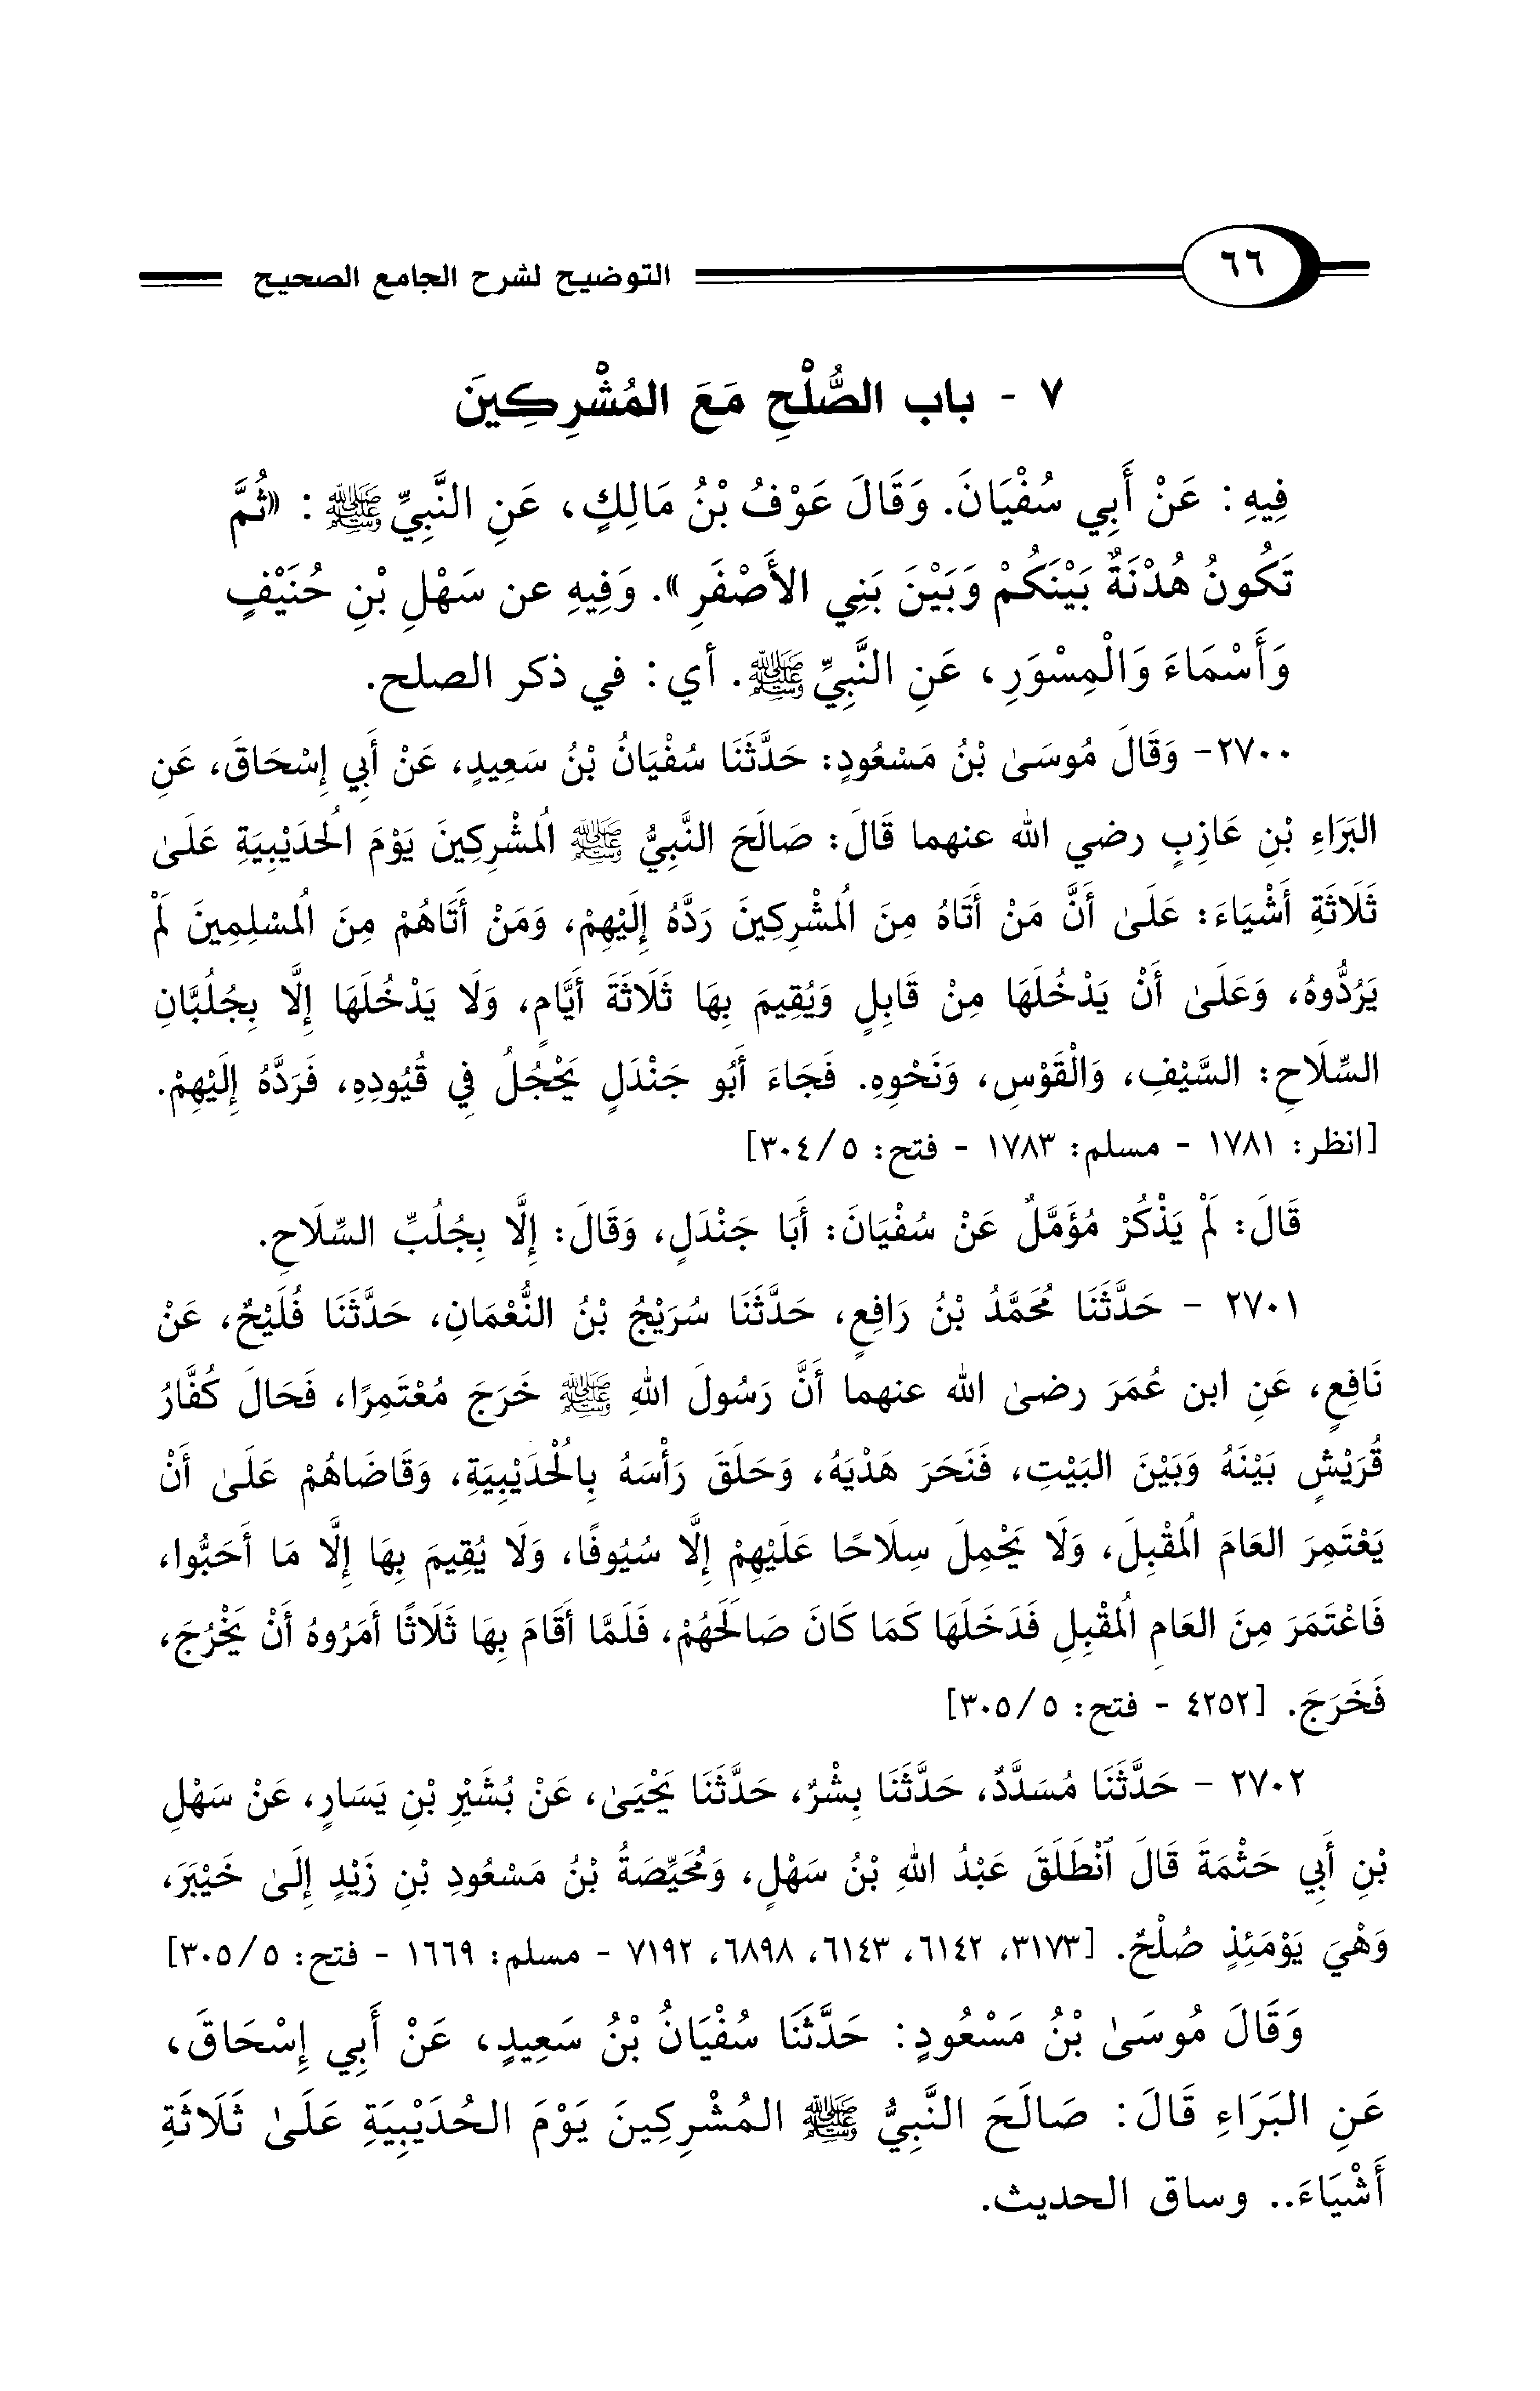 ٦٦
التوضيح لشرح الجامع الصحيح
٧ - باب الصُّلْحِ مَعَ المُشْرِكِينَ
فِيهِ: عَنْ أَبِي سُفْيَانَ. وَقَالَ عَوْفُ بْنُ مَالِكٍ، عَنِ النَّبِيِّ ﷺ: «ثُمَّ
تَكُونُ هُدْنَةٌ بَيْنَكُمْ وَبَيْنَ بَنِي الأَصْفَرِ». وَفِيهِ عن سَهْلِ بْنِ حُنَيْفٍ
وَأَسْمَاءَ وَالْمِسْوَرِ، عَنِ النَّبِيِّ ﷺ. أي: في ذكر الصلح.
٢٧٠٠- وَقَالَ مُوسَىٰ بْنُ مَسْعُودٍ: حَدَّثَنَا سُفْيَانُ بْنُ سَعِيدٍ، عَنْ أَبِي إِسْحَاقَ، عَنِ
البَرَاءِ بْنِ عَازِبٍ رضي الله عنهما قَالَ: صَالَحَ النَّبِيُّ ﷺ المُشْرِكِينَ يَوْمَ الحُدَيْبِيَةِ عَلَىٰ
ثَلَاثَةِ أَشْيَاءَ: عَلَىٰ أَنَّ مَنْ أَتَاهُ مِنَ المُشْرِكِينَ رَدَّهُ إِلَيْهِمْ، وَمَنْ أَتَاهُمْ مِنَ المُسْلِمِينَ لَمْ
يَرُدُّوهُ، وَعَلَىٰ أَنْ يَدْخُلَهَا مِنْ قَابِلٍ وَيُقِيمَ بِهَا ثَلَاثَةَ أَيَّامٍ، وَلَا يَدْخُلَهَا إِلَّا بِجُلُبَّانِ
السِّلَاحِ: السَّيْفِ، وَالْقَوْسِ، وَنَحْوِهِ. فَجَاءَ أَبُو جَنْدَلٍ يَحْجُلُ فِي قُيُودِهِ، فَرَدَّهُ إِلَيْهِمْ.
[انظر: ١٧٨١ - مسلم: ١٧٨٣ - فتح: ٣٠٤/٥]
قَالَ: لَمْ يَذْكُرْ مُؤَمَّلٌ عَنْ سُفْيَانَ: أَبَا جَنْدَلٍ، وَقَالَ: إِلَّا بِجُلُبِّ السِّلَاحِ.
٢٧٠١ - حَدَّثَنَا مُحَمَّدُ بْنُ رَافِعٍ، حَدَّثَنَا سُرَيْجُ بْنُ النُّعْمَانِ، حَدَّثَنَا فُلَيْحٌ، عَنْ
نَافِعٍ، عَنِ ابن عُمَرَ رضىٰ الله عنهما أَنَّ رَسُولَ اللهِ ﷺ خَرَجَ مُعْتَمِرًا، فَحَالَ كُفَّارُ
قُرَيْشٍ بَيْنَهُ وَبَيْنَ البَيْتِ، فَنَحَرَ هَدْيَهُ، وَحَلَقَ رَأْسَهُ بِالْحُدَيْبِيَةِ، وَقَاضَاهُمْ عَلَىٰ أَنْ
يَعْتَمِرَ العَامَ المُقْبِلَ، وَلَا يَحْمِلَ سِلَاحًا عَلَيْهِمْ إِلَّا سُيُوفًا، وَلَا يُقِيمَ بِهَا إِلَّا مَا أَحَبُّوا،
فَاعْتَمَرَ مِنَ العَامِ المُقْبِلِ فَدَخَلَهَا كَمَا كَانَ صَالَحَهُمْ، فَلَمَّا أَقَامَ بِهَا ثَلَاثًا أَمَرُوهُ أَنْ يَخْرُجَ،
فَخَرَجَ. [٤٢٥٢ - فتح: ٣٠٥/٥]
٢٧٠٢ - حَدَّثَنَا مُسَدَّدٌ، حَدَّثَنَا بِشْرٌ، حَدَّثَنَا يَحْيَىٰ، عَنْ بُشَيْرِ بْنِ يَسَارٍ، عَنْ سَهْلِ
بْنِ أَبِي حَثْمَةَ قَالَ ٱنْطَلَقَ عَبْدُ اللهِ بْنُ سَهْلٍ، وَمُحَيِّصَةُ بْنُ مَسْعُودِ بْنِ زَيْدٍ إِلَىٰ خَيْبَرَ،
وَهْيَ يَوْمَئِذٍ صُلْحٌ. [٣١٧٣، ٦١٤٢، ٦١٤٣، ٦٨٩٨، ٧١٩٢ - مسلم: ١٦٦٩ - فتح: ٣٠٥/٥]
وَقَالَ مُوسَىٰ بْنُ مَسْعُودٍ: حَدَّثَنَا سُفْيَانُ بْنُ سَعِيدٍ، عَنْ أَبِي إِسْحَاقَ،
عَنِ البَرَاءِ قَالَ: صَالَحَ النَّبِيُّ ﷺ المُشْرِكِينَ يَوْمَ الحُدَيْبِيَةِ عَلَىٰ ثَلَاثَةِ
أَشْيَاءَ.. وساق الحديث.